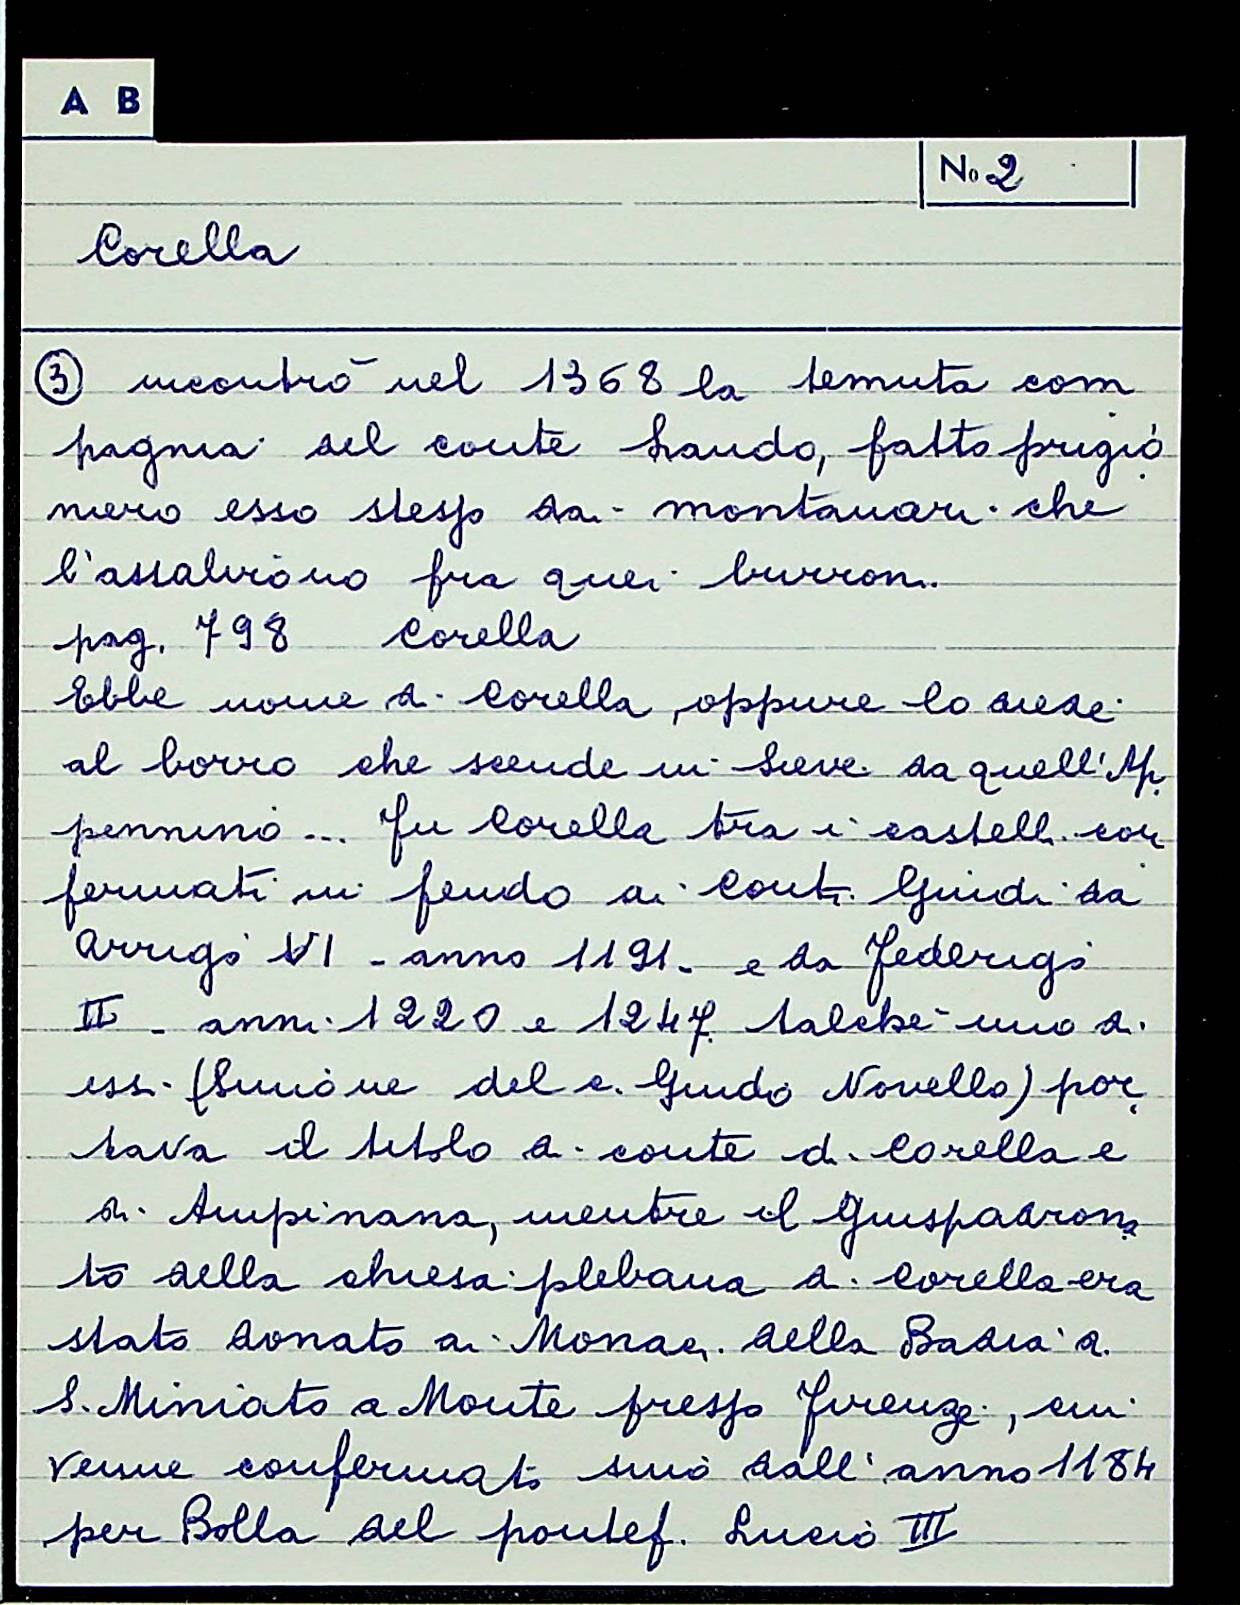 A B
No 2
Corella
③ incontrò nel 1368 la temuta com
pagnia del conte Lando, fatto prigio
niero esso stesso dai montanari che
l'assalirono fra quei burroni.
pag. 798 Corella
Ebbe nome di Corella, oppure lo diede
al borro che scende in Sieve da quell'Ap
pennino... Fu Corella tra i castelli con
fermati in feudo ai Conti Guidi da
Arrigo VI - anno 1191 - e da Federigo
II - anni 1220 e 1247 talchè uno di
essi (Simone del c. Guido Novello) por
tava il titolo di conte di Corella e
di Ampinana, mentre il Giuspadrona
to della chiesa plebana di Corella era
stato donato ai Monaci della Badia di
S. Miniato a Monte presso Firenze, cui
venne confermato sino dall'anno 1184
per Bolla del pontef. Lucio III